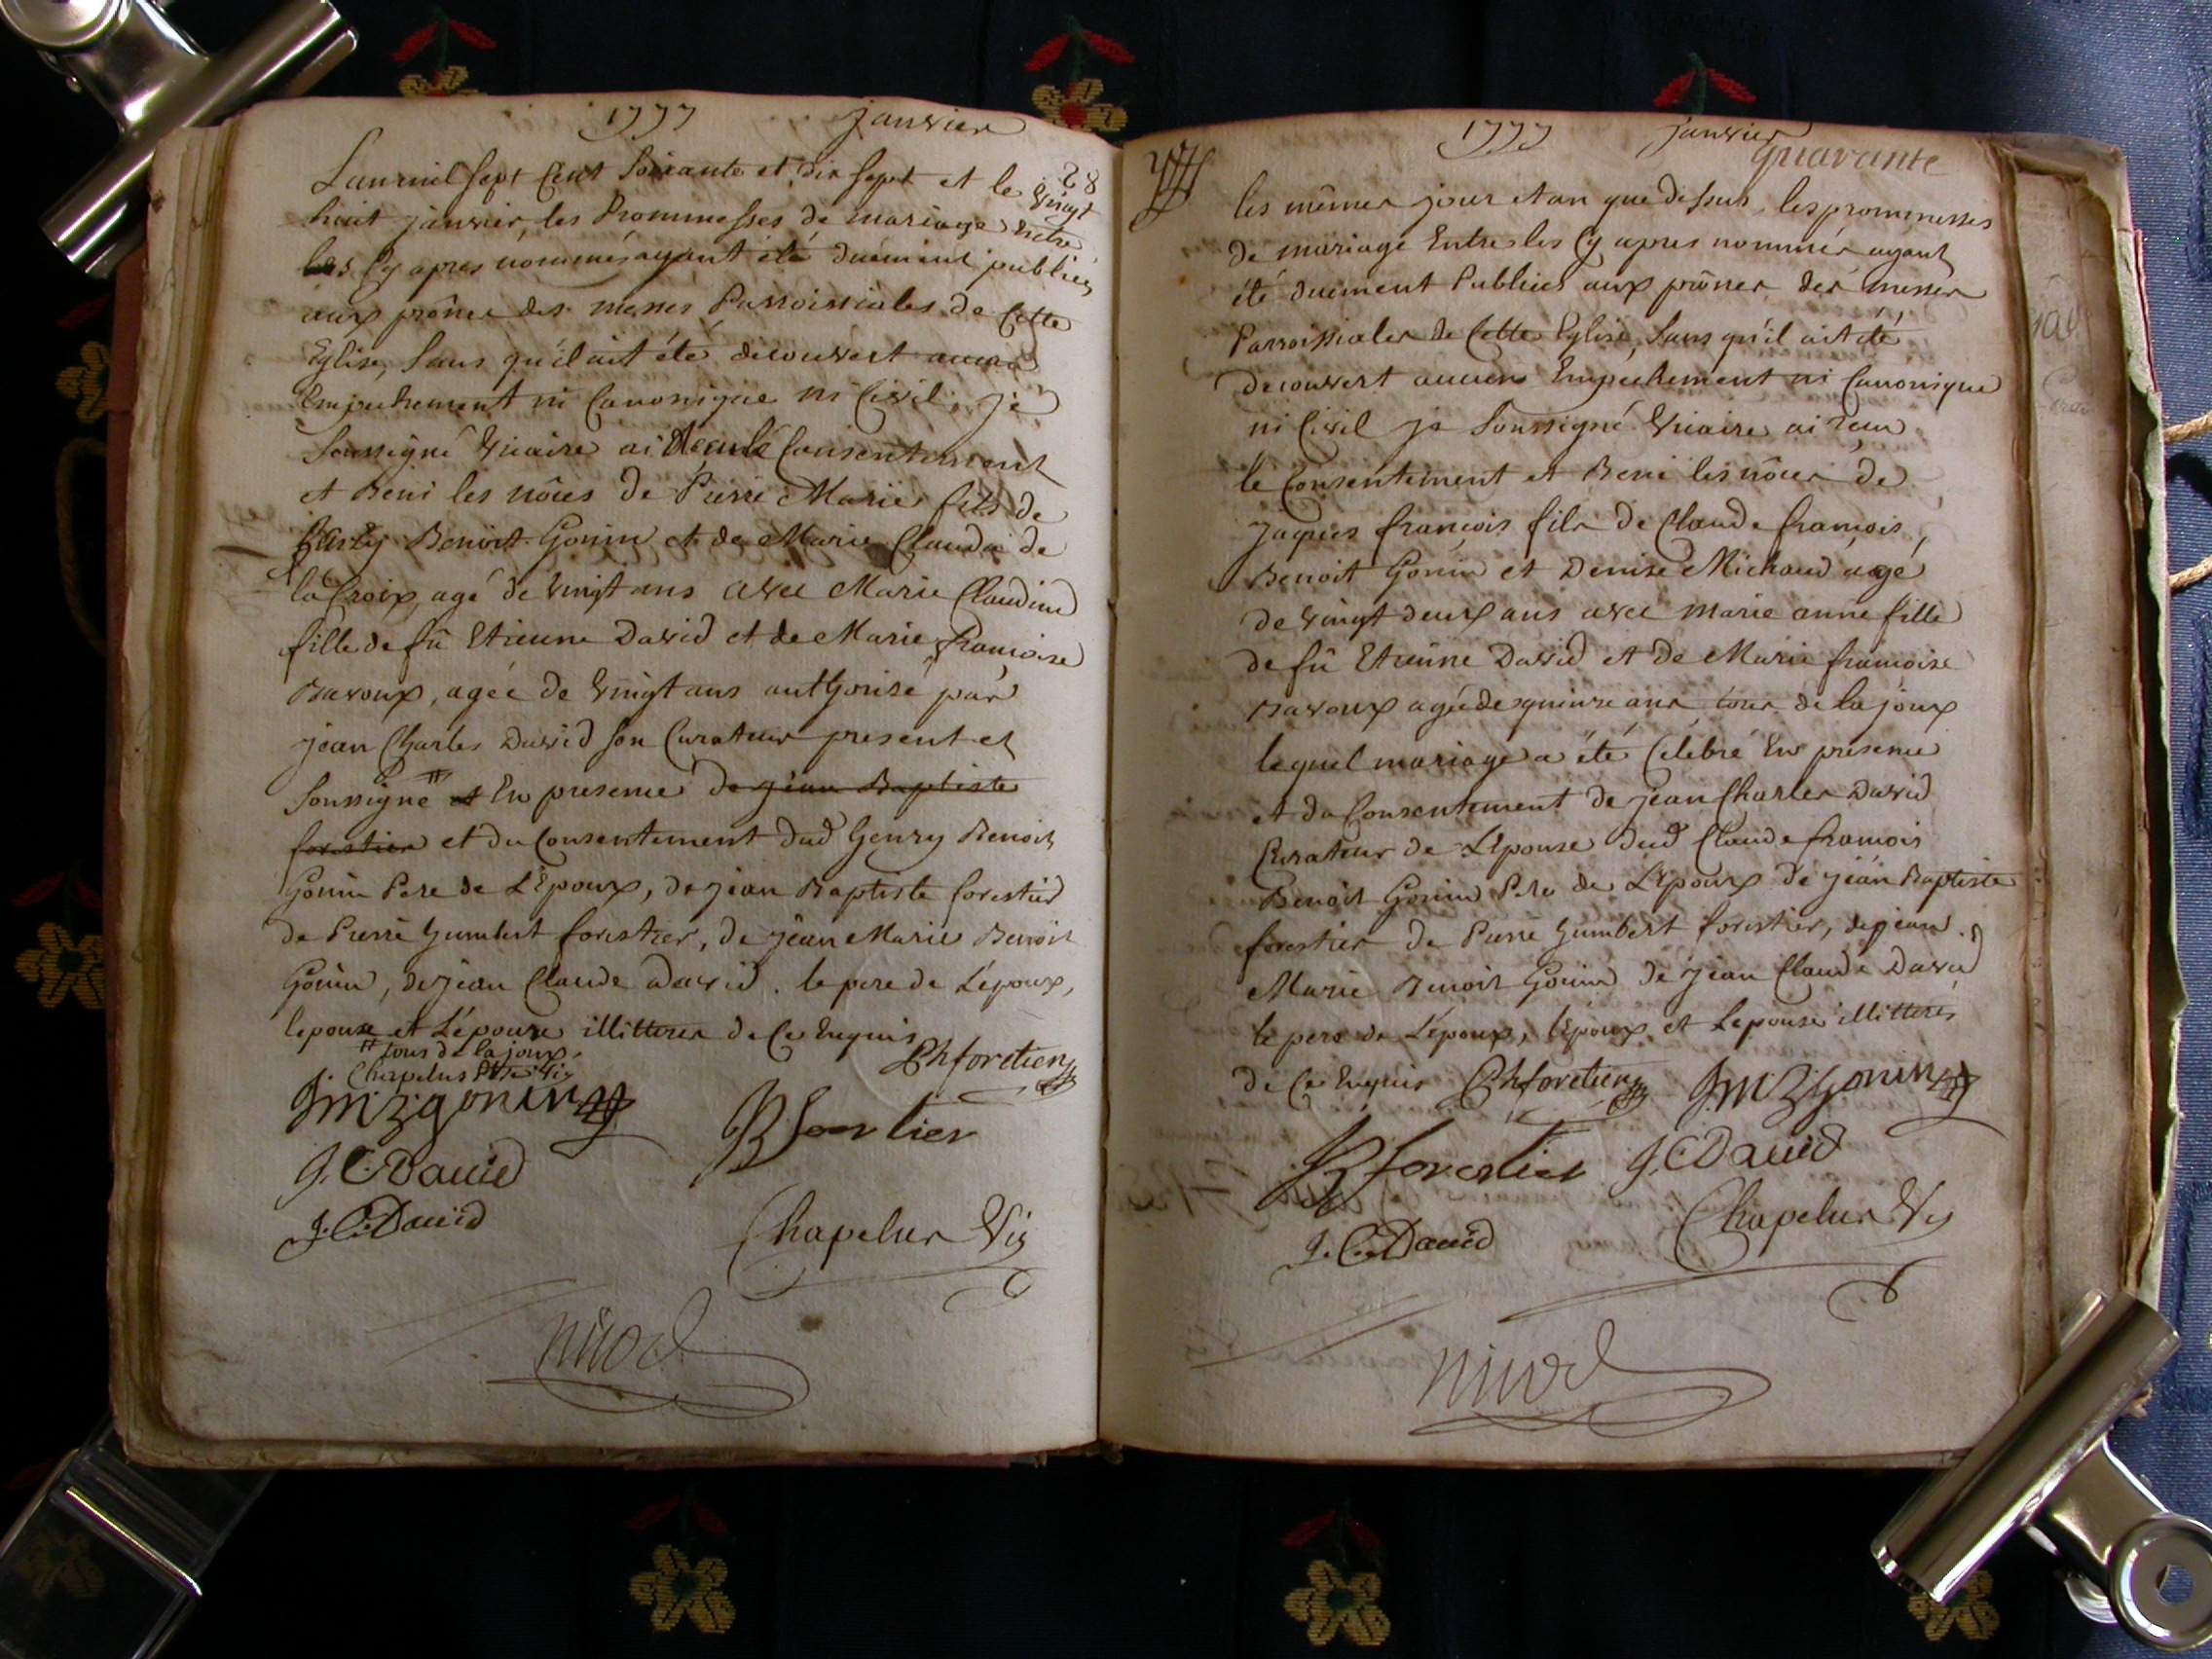 1777 janvier
28
Lan mil sept Cent Soixante et dix sept et le vingt
huit janvier, les Prommesses de mariage Entre
les Cy apres nommés ayant été duëment publiées
aux prônes des messes Parroissiales de Cette
Eglise, Sans qu'il ait été découvert aucun
Empechement ni Canonique ni Civil, je
Soussigné Vicaire ai Reçu le Consentement
et Beni les nôces de Pierre Marie fils de
Benoit Gonin et de Marie Claudine de
la Croix, agé de vingt ans avec Marie Claudine
fille de fû Etienne David et de Marie françoise
Bavoux, agée de vingt ans authorisé par
jean Charles David son Curateur present et
Soussigné # et En presence de jean Baptiste
forestier et du Consentement dud henry Benoit
Gonin Pere de L'Epoux, de jean Baptiste forestier
de Pierre humbert forestier, de jean Marie Benoit
Gonin, de jean Claude david. le pere de L'époux,
lepoux et L'épouse illitterés de Ce Enquis
# tous de la joux.
Chapelus
PhforetieR
J m Z gonin
JB forestier
J. C. David
J. C. David
Chapelus Vic
Nicod
1777 janvier
quarante
les mêmes jour et an que dessus, les prommesses
de mariage Entre les Cy apres nommés ayant
été duëment Publiées aux prônes des messes
Parroissiales de Cette Eglise, Sans qu'il ait été
decouvert aucun Empechement ni Canonique
ni Civil je Soussigné Vicaire ai reçu
le Consentement et Beni les nôces de
jaques françois fils de Claude françois
Benoit Gonin et Denise Michaud agé
de vingt deux ans avec marie anne fille
de fû Etienne David et de Marie francoise
Bavoux agée de quinze ans tous de la joux
lequel mariage a été Célebré En presence
et du Consentement de jean Charles David
Curateur de L'Epouse dud Claude francois
Benoit Gonin Pere de L'Epoux de jean Baptiste
forestier de Pierre humbert forestier, de jean
Marie Benoit Gonin de jean Claude David
le pere de L'époux, l'époux et Lepouse illitterés
de Ce Enquis PhforetieR J m Z gonin
JB forestier J. C David
J. C. David
Chapelus Vic
Nicod